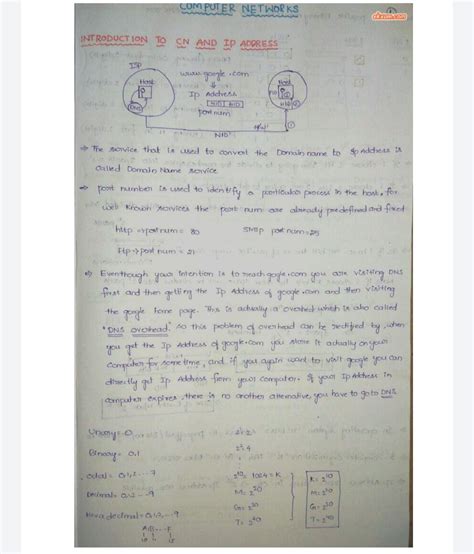 COMPUTER NETWORKS
INTRODUCTION TO CN AND IP ADDRESS
ISP
Host
www.google.com
Host
IP Address
NID HID
port num
DNS
NID
⇒ The service that is used to convert the Domain name to Ip Address is
called Domain Name service
⇒ port number is used to identify a particular process in the host, for
well known services the port num are already predefined and fixed
http → port num = 80 SMTP port num = 25
Ftp → port num = 21
⇒ Eventhough your intention is to reach google.com you are visiting DNS
first and then getting the Ip Address of google.com and then visiting
the google home page. This is actually a overhead which is also called
"DNS overhead". So this problem of overhead can be rectified by, when
you get the IP Address of google.com you store it actually on your
computer for sometime, and if you again want to visit google you can
directly get Ip Address from your computer. If your Ip Address in
computer expires, there is no another alternative, you have to go to DNS.
Unary = 0
Binary = 0,1
2² = 4
octal = 0,1,2,...7
2¹⁰ = 1024 = K
K = 2¹⁰
Decimal = 0,1,2...9
M = 2²⁰
M = 2²⁰
G = 2³⁰
G = 2³⁰
Hexa decimal = 0,1,2,...9,
T = 2⁴⁰
T = 2⁴⁰